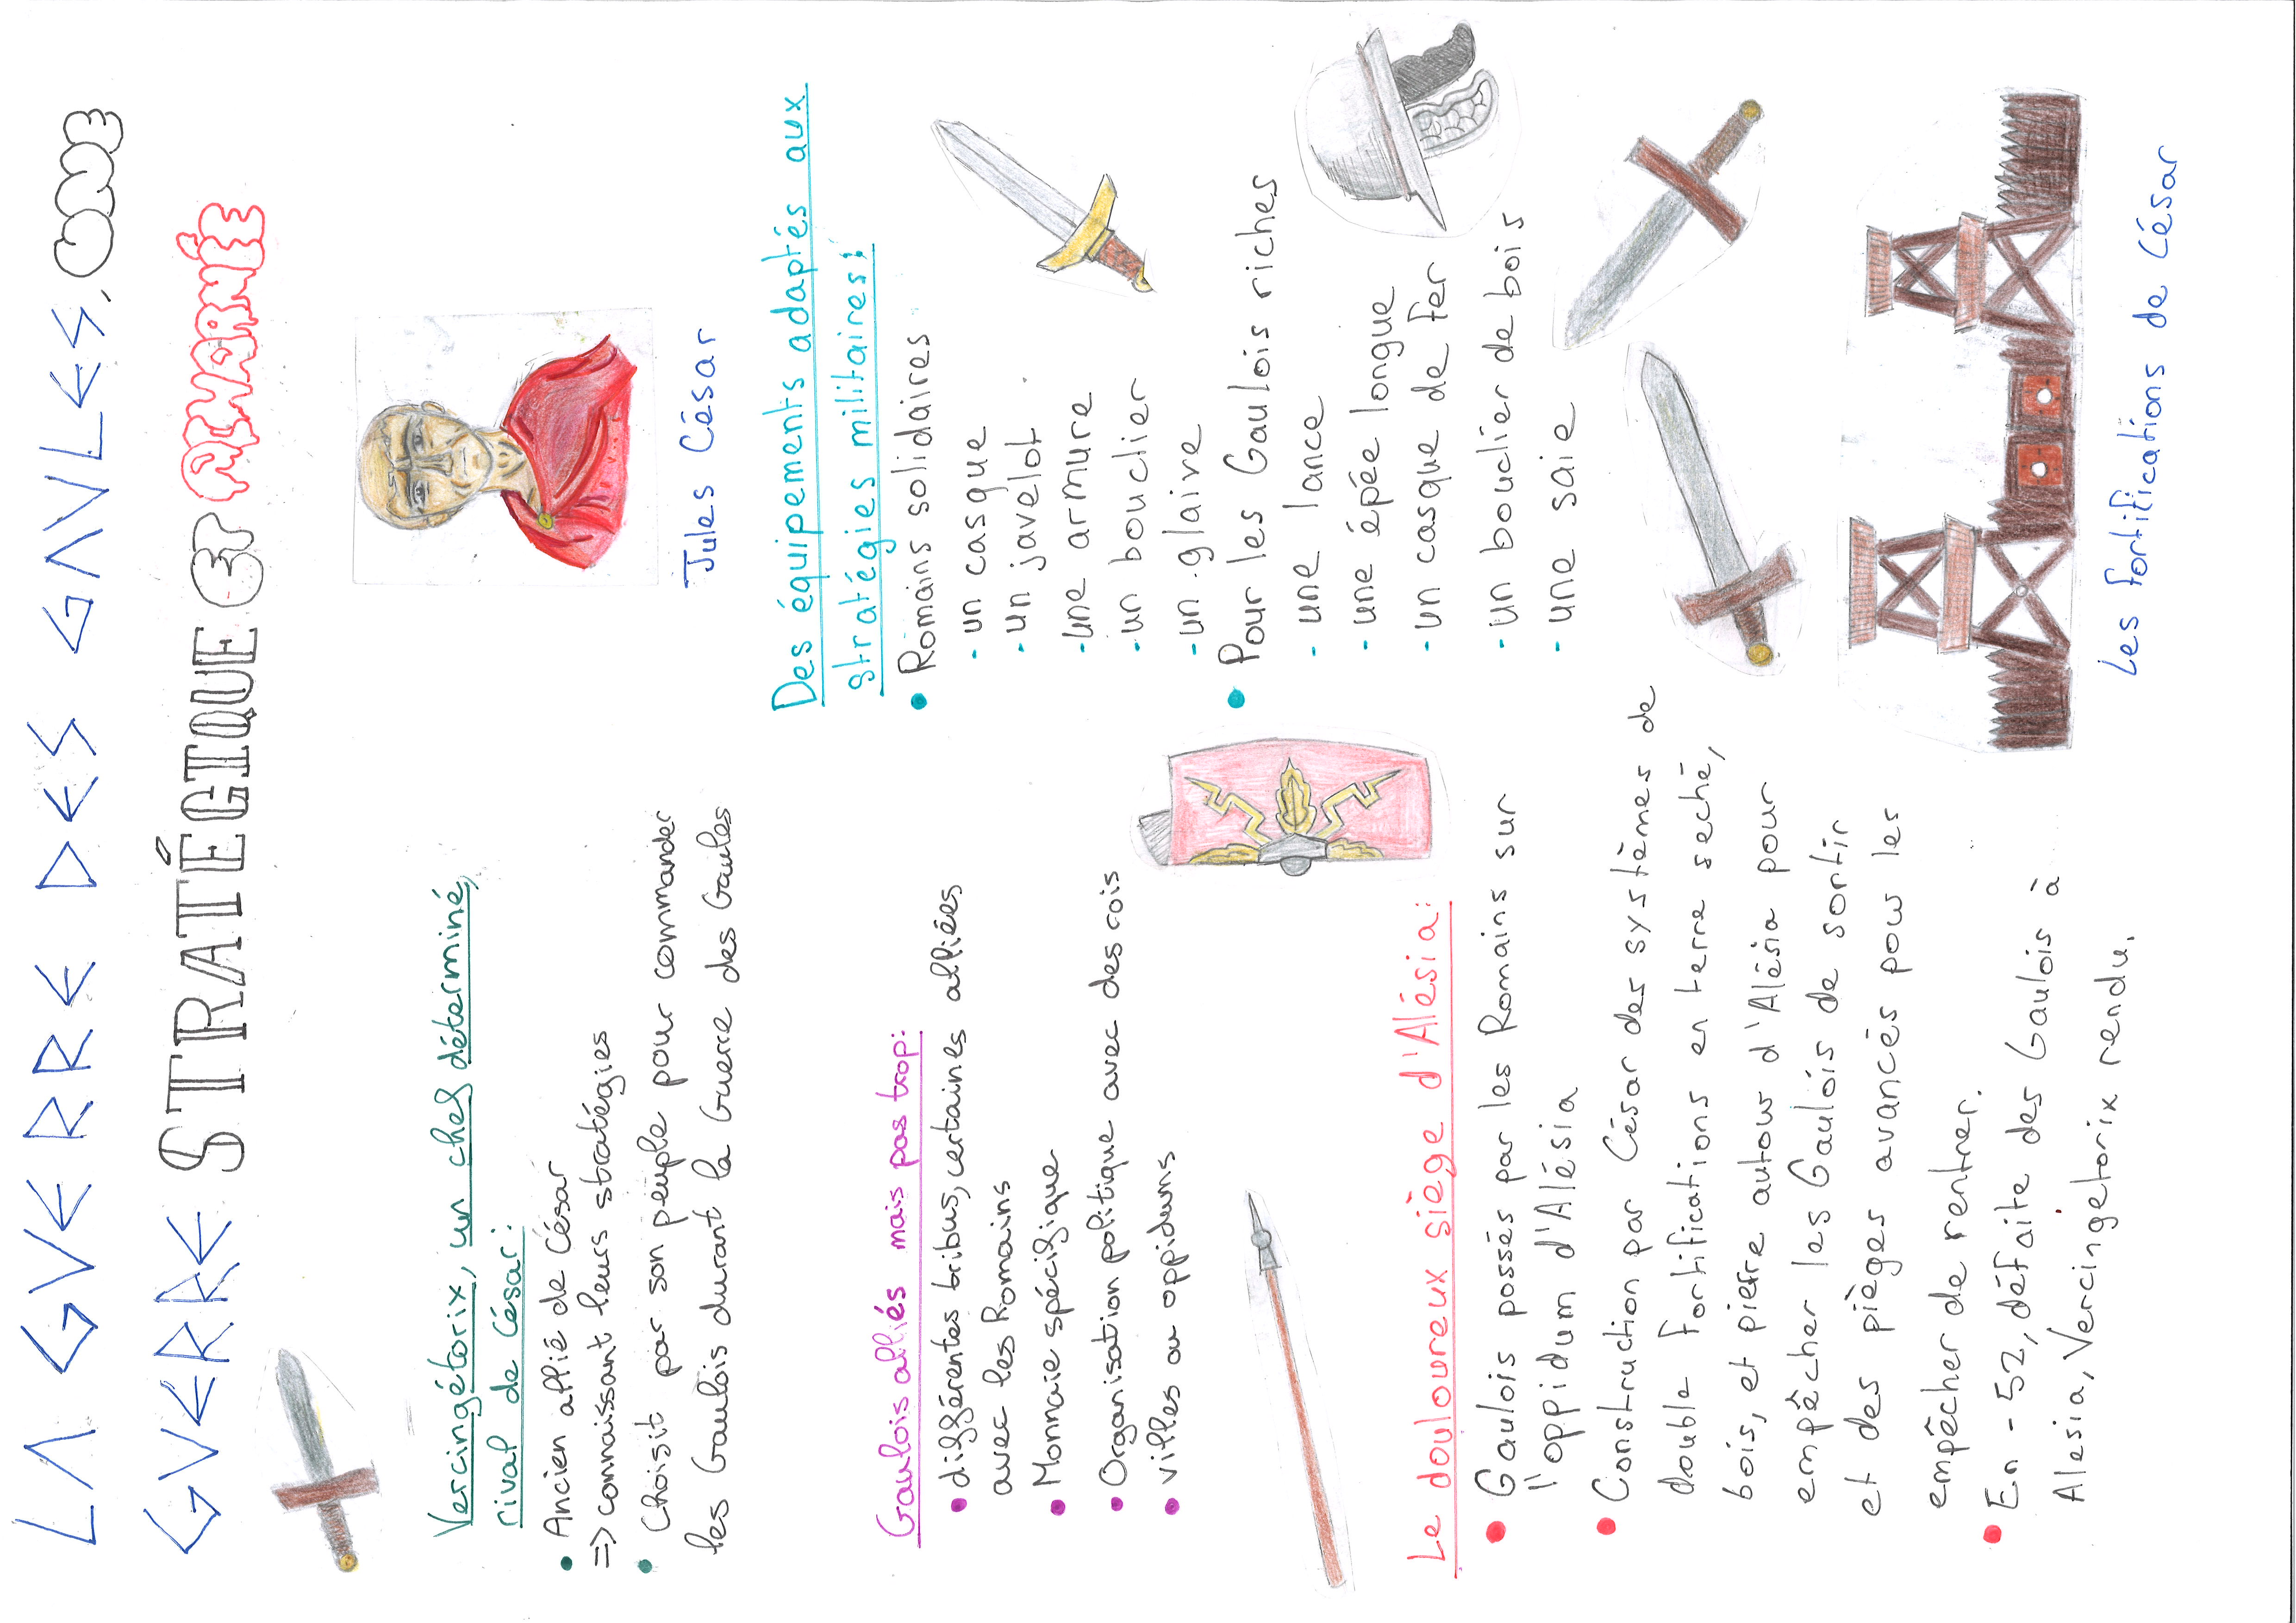 LA GVERRE DES GAVLES, UNE
GVERRE STRATÉGIQUE ET ACHARNÉE
Vercingétorix, un chef déterminé,
rival de César :
• Ancien allié de César
=> connaissant leurs stratégies
• Choisit par son peuple pour commander
les Gaulois durant la Guerre des Gaules
Gaulois alliés mais pas trop:
• différentes tribus, certaines alliées
avec les Romains
• Monnaie spécifique
• Organisation politique avec des rois
• villes ou oppidums
Le douloureux siège d'Alésia:
• Gaulois possés par les Romains sur
l'oppidum d'Alésia
• Construction par César des systèmes de
double fortifications en terre seché,
bois, et pierre autour d'Alésia pour
empêcher les Gaulois de sortir
et des pièges avancés pour les
empêcher de rentrer.
• En -52, défaite des Gaulois à
Alesia, Vercingetorix rendu.
Jules César
Des équipements adaptés aux
stratégies militaires:
• Romains solidaires
- un casque
- un javelot
- une armure
- un bouclier
- un glaive
• Pour les Gaulois riches
- une lance
- une épée longue
- un casque de fer
- un bouclier de bois
- une saie
Les fortifications de César